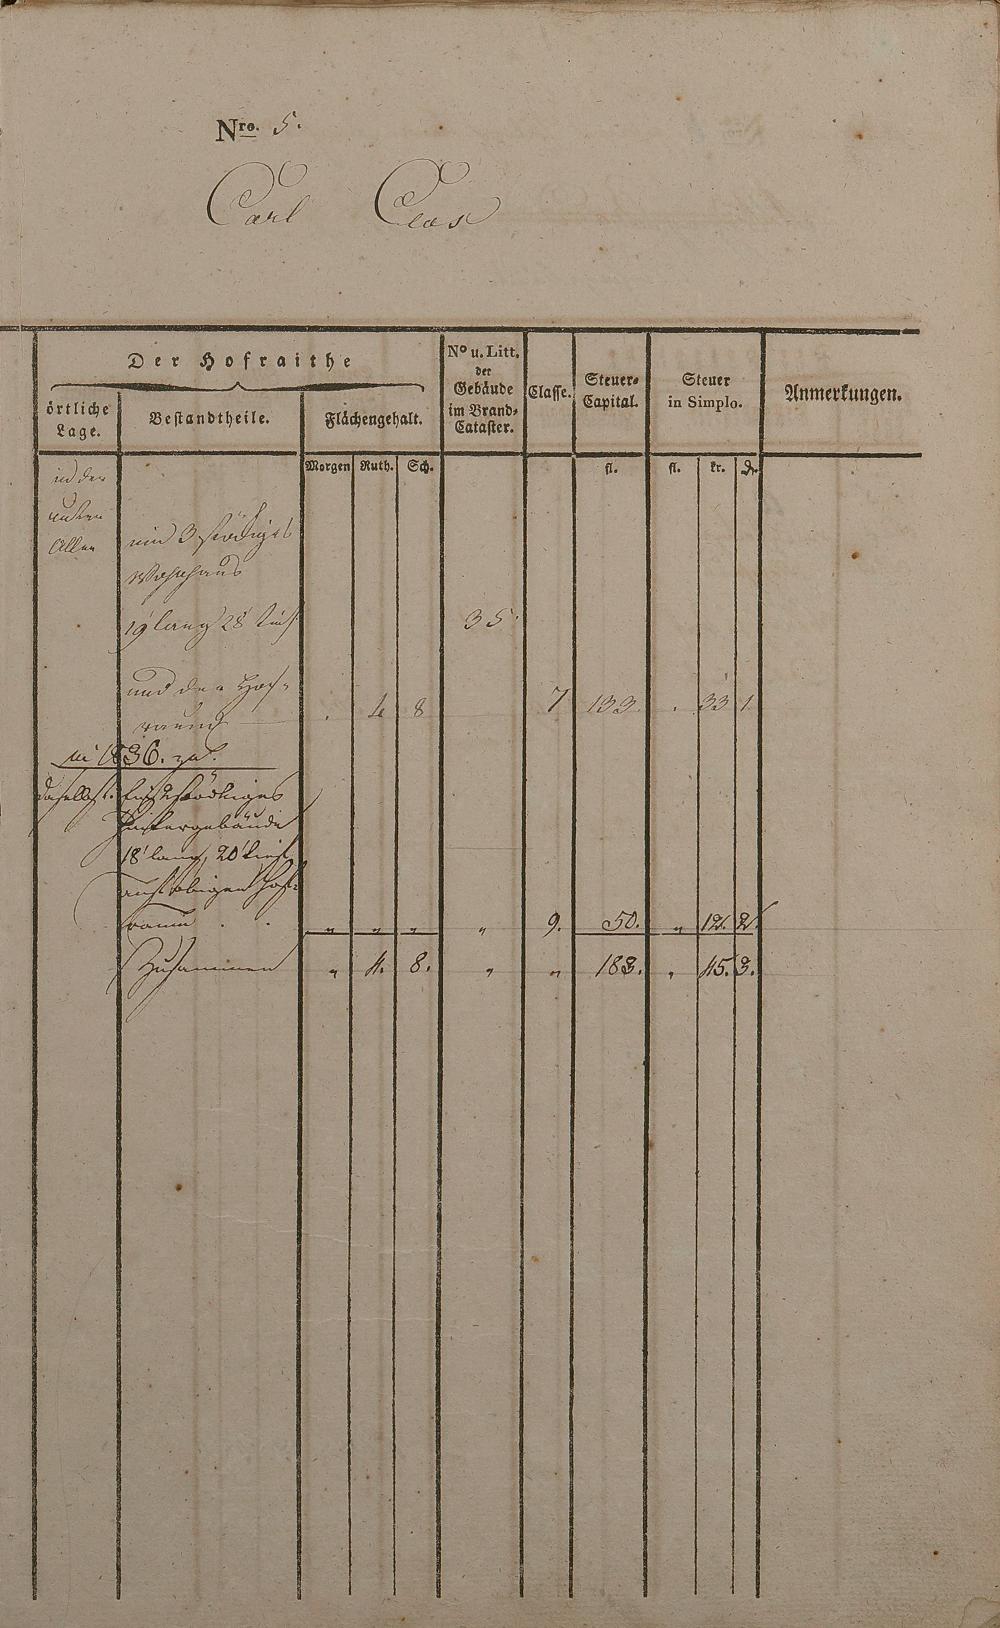 Nro. 5.
Carl Clos
Der Hofraithe
örtliche Lage.
Bestandtheile.
Flächengehalt.
No u. Litt. der Gebäude im Brand-Cataster.
Classe.
Steuer-Capital.
Steuer in Simplo.
Anmerkungen.
Morgen Ruth. Sch. fl. fl. kr. d.
in der
untern
Allee
ein 3 stöckiges
Wohnhaus
19' lang 28' tief 35.
und der Hof-
raum . 4 8 7 133 . 33 1
in 1836. zu.
daselbst. Ein 2 stöckiges
Hintergebäude
18' lang, 20' tief
auf obigen Hof-
raum . . " " " " 9. 50. " 12. 2.
Zusammen " 4. 8. " " 183. " 45. 3.